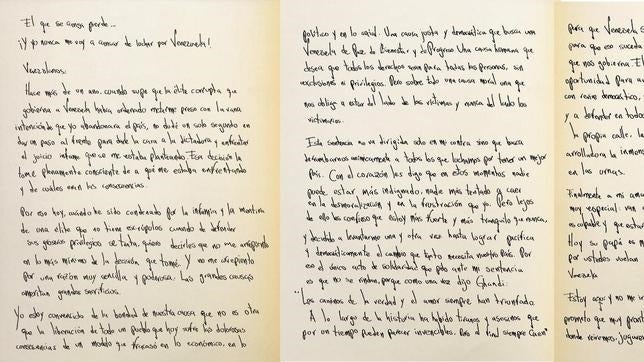 El que se cansa pierde...
¡Y yo nunca me voy a cansar de luchar por Venezuela!
Venezolanos:
Hace más de un año, cuando supe que la élite corrupta que
gobierna a Venezuela había ordenado meterme preso con la vana
intención de que yo abandonara el país, no dudé un solo segundo en
dar un paso al frente para darle la cara a la dictadura y enfrentar
el juicio infame que se me estaba planteando. Esa decisión la
tomé plenamente consciente de a qué me estaba enfrentando
y de cuáles eran las consecuencias.
Por eso hoy, cuando he sido condenado por la infamia y la mentira
de una élite que no tiene escrúpulos cuando de defender
sus groseros privilegios se trata, quiero decirles que no me arrepiento
en lo más mínimo de la decisión que tomé. Y no me arrepiento
por una razón muy sencilla y poderosa: Las grandes causas
ameritan grandes sacrificios.
Yo estoy convencido de la bondad de nuestra causa que no es otra
que la liberación de todo un pueblo que hoy sufre las dolorosas
consecuencias de un modelo que fracasó en lo económico, en lo
político y en lo social. Una causa justa y democrática que busca una
Venezuela de Paz, de Bienestar y de Progreso. Una causa humana que
desea que todos los derechos sean para todas las personas, sin
exclusiones ni privilegios. Pero sobre todo una causa moral que
nos obliga a estar del lado de las víctimas y nunca del lado de los
victimarios.
Esta sentencia no va dirigida sólo en mi contra sino que busca
derrumbarnos anímicamente a todos los que luchamos por tener un mejor
país. Con el corazón les digo que en estos momentos nadie
puede estar más indignado, nadie más tentado a caer
en la desmoralización y en la frustración que yo. Pero lejos
de ello les confieso que estoy más fuerte y más tranquilo que nunca,
y decidido a levantarme una y otra vez hasta lograr pacífica
y democráticamente el cambio que tanto necesita nuestro País. Por
eso el único acto de solidaridad que pido ante mi sentencia
es que no se rindan, porque como una vez dijo Ghandi:
"Los caminos de la verdad y el amor siempre han triunfado.
A lo largo de la historia ha habido tiranos y asesinos que
por un tiempo pueden parecer invencibles. Pero al final siempre caen"
para que Venezuela
para que eso suceda
que nos gobierna. El
oportunidad para
con revire democrático,
y a defender en todos
la propia calle, la
arrolladora la inmensa
en las urnas.
Finalmente a mi
muy especial: ven
es capaz y que estar
Hoy su papá es
por ustedes vuelvan
Venezuela
Estoy aquí y no me
prometo que muy pronto
donde reiremos,